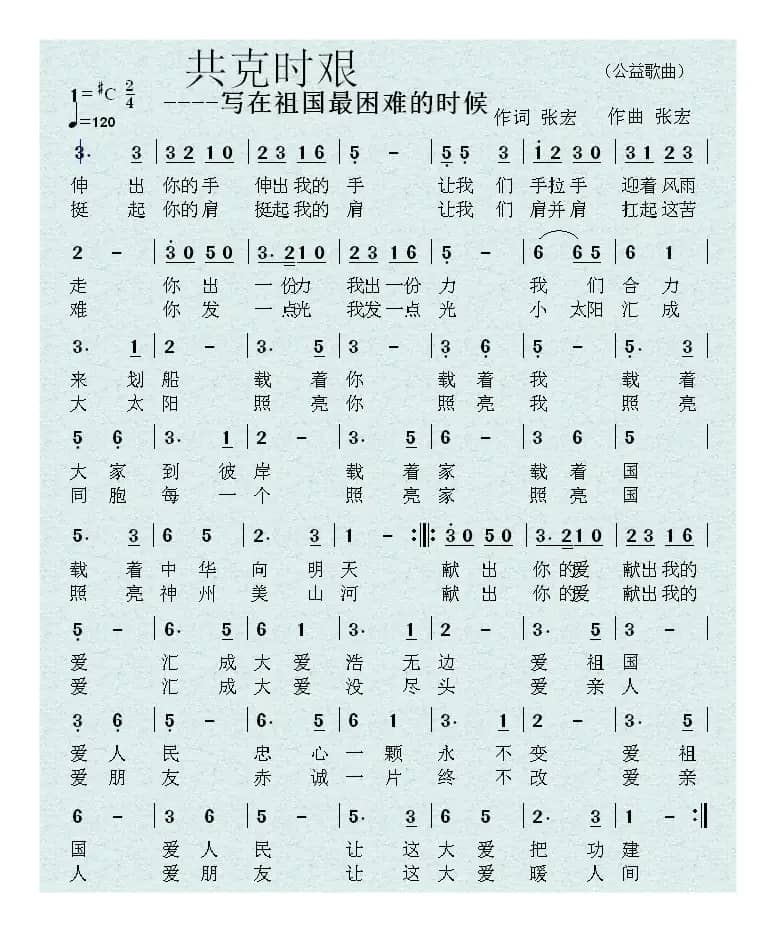 共克时艰
（公益歌曲）
1=#C 2/4
----写在祖国最困难的时候
♩=120
作词 张宏 作曲 张宏
3. 3 | 3 2 1 0 | 2 3 1 6 | 5 - | 5 5 3 | 1 2 3 0 | 3 1 2 3 |
伸 出 你的手 伸出我的 手 让我 们 手拉手 迎着风雨
挺 起 你的肩 挺起我的 肩 让我 们 肩并肩 扛起这苦
2 - | 3 0 5 0 | 3. 2 1 0 | 2 3 1 6 | 5 - | 6 6 5 | 6 1 |
走 你 出 一份力 我出一份 力 我 们 合 力
难 你 发 一点光 我发一点 光 小 太阳 汇 成
3. 1 | 2 - | 3. 5 | 3 - | 3 6 | 5 - | 5. 3 |
来 划 船 载 着 你 载 着 我 载 着
大 太 阳 照 亮 你 照 亮 我 照 亮
5 6 | 3. 1 | 2 - | 3. 5 | 6 - | 3 6 | 5
大 家 到 彼 岸 载 着 家 载 着 国
同 胞 每 一 个 照 亮 家 照 亮 国
5. 3 | 6 5 | 2. 3 | 1 - :‖: 3 0 5 0 | 3. 2 1 0 | 2 3 1 6 |
载 着 中 华 向 明 天 献 出 你 的爱 献出我的
照 亮 神 州 美 山 河 献 出 你 的爱 献出我的
5 - | 6. 5 | 6 1 | 3. 1 | 2 - | 3. 5 | 3 - |
爱 汇 成 大 爱 浩 无 边 爱 祖 国
爱 汇 成 大 爱 没 尽 头 爱 亲 人
3 6 | 5 - | 6. 5 | 6 1 | 3. 1 | 2 - | 3. 5 |
爱 人 民 忠 心 一 颗 永 不 变 爱 祖
爱 朋 友 赤 诚 一 片 终 不 改 爱 亲
6 - | 3 6 | 5 - | 5. 3 | 6 5 | 2. 3 | 1 - :‖
国 爱 人 民 让 这 大 爱 把 功 建
人 爱 朋 友 让 这 大 爱 暖 人 间